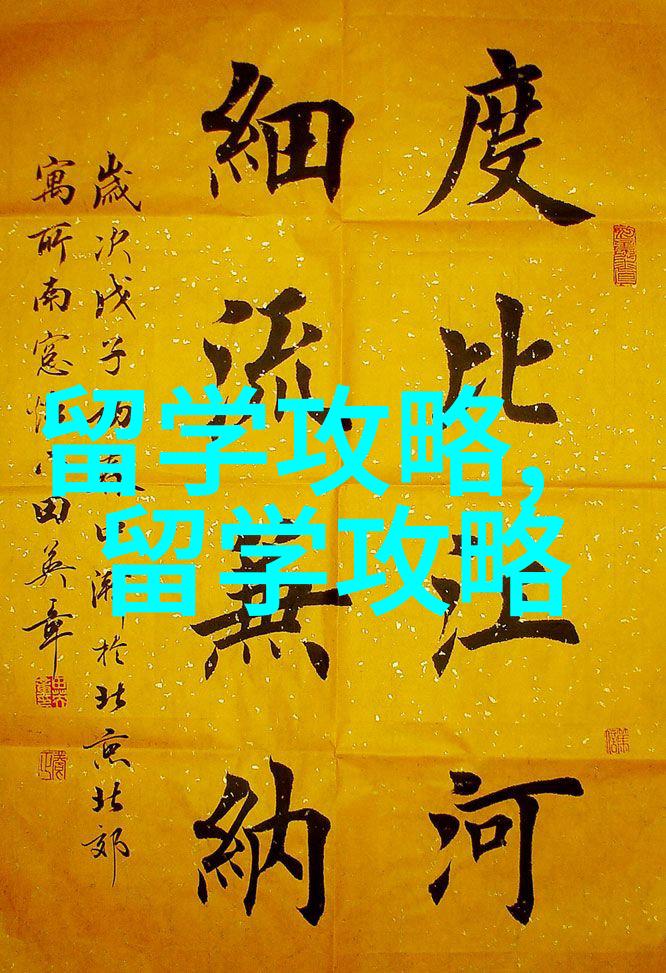 度比江河
細流無納
歲次戊子於北京北郊
寓所南窓田英章
留学攻略,
留学攻略